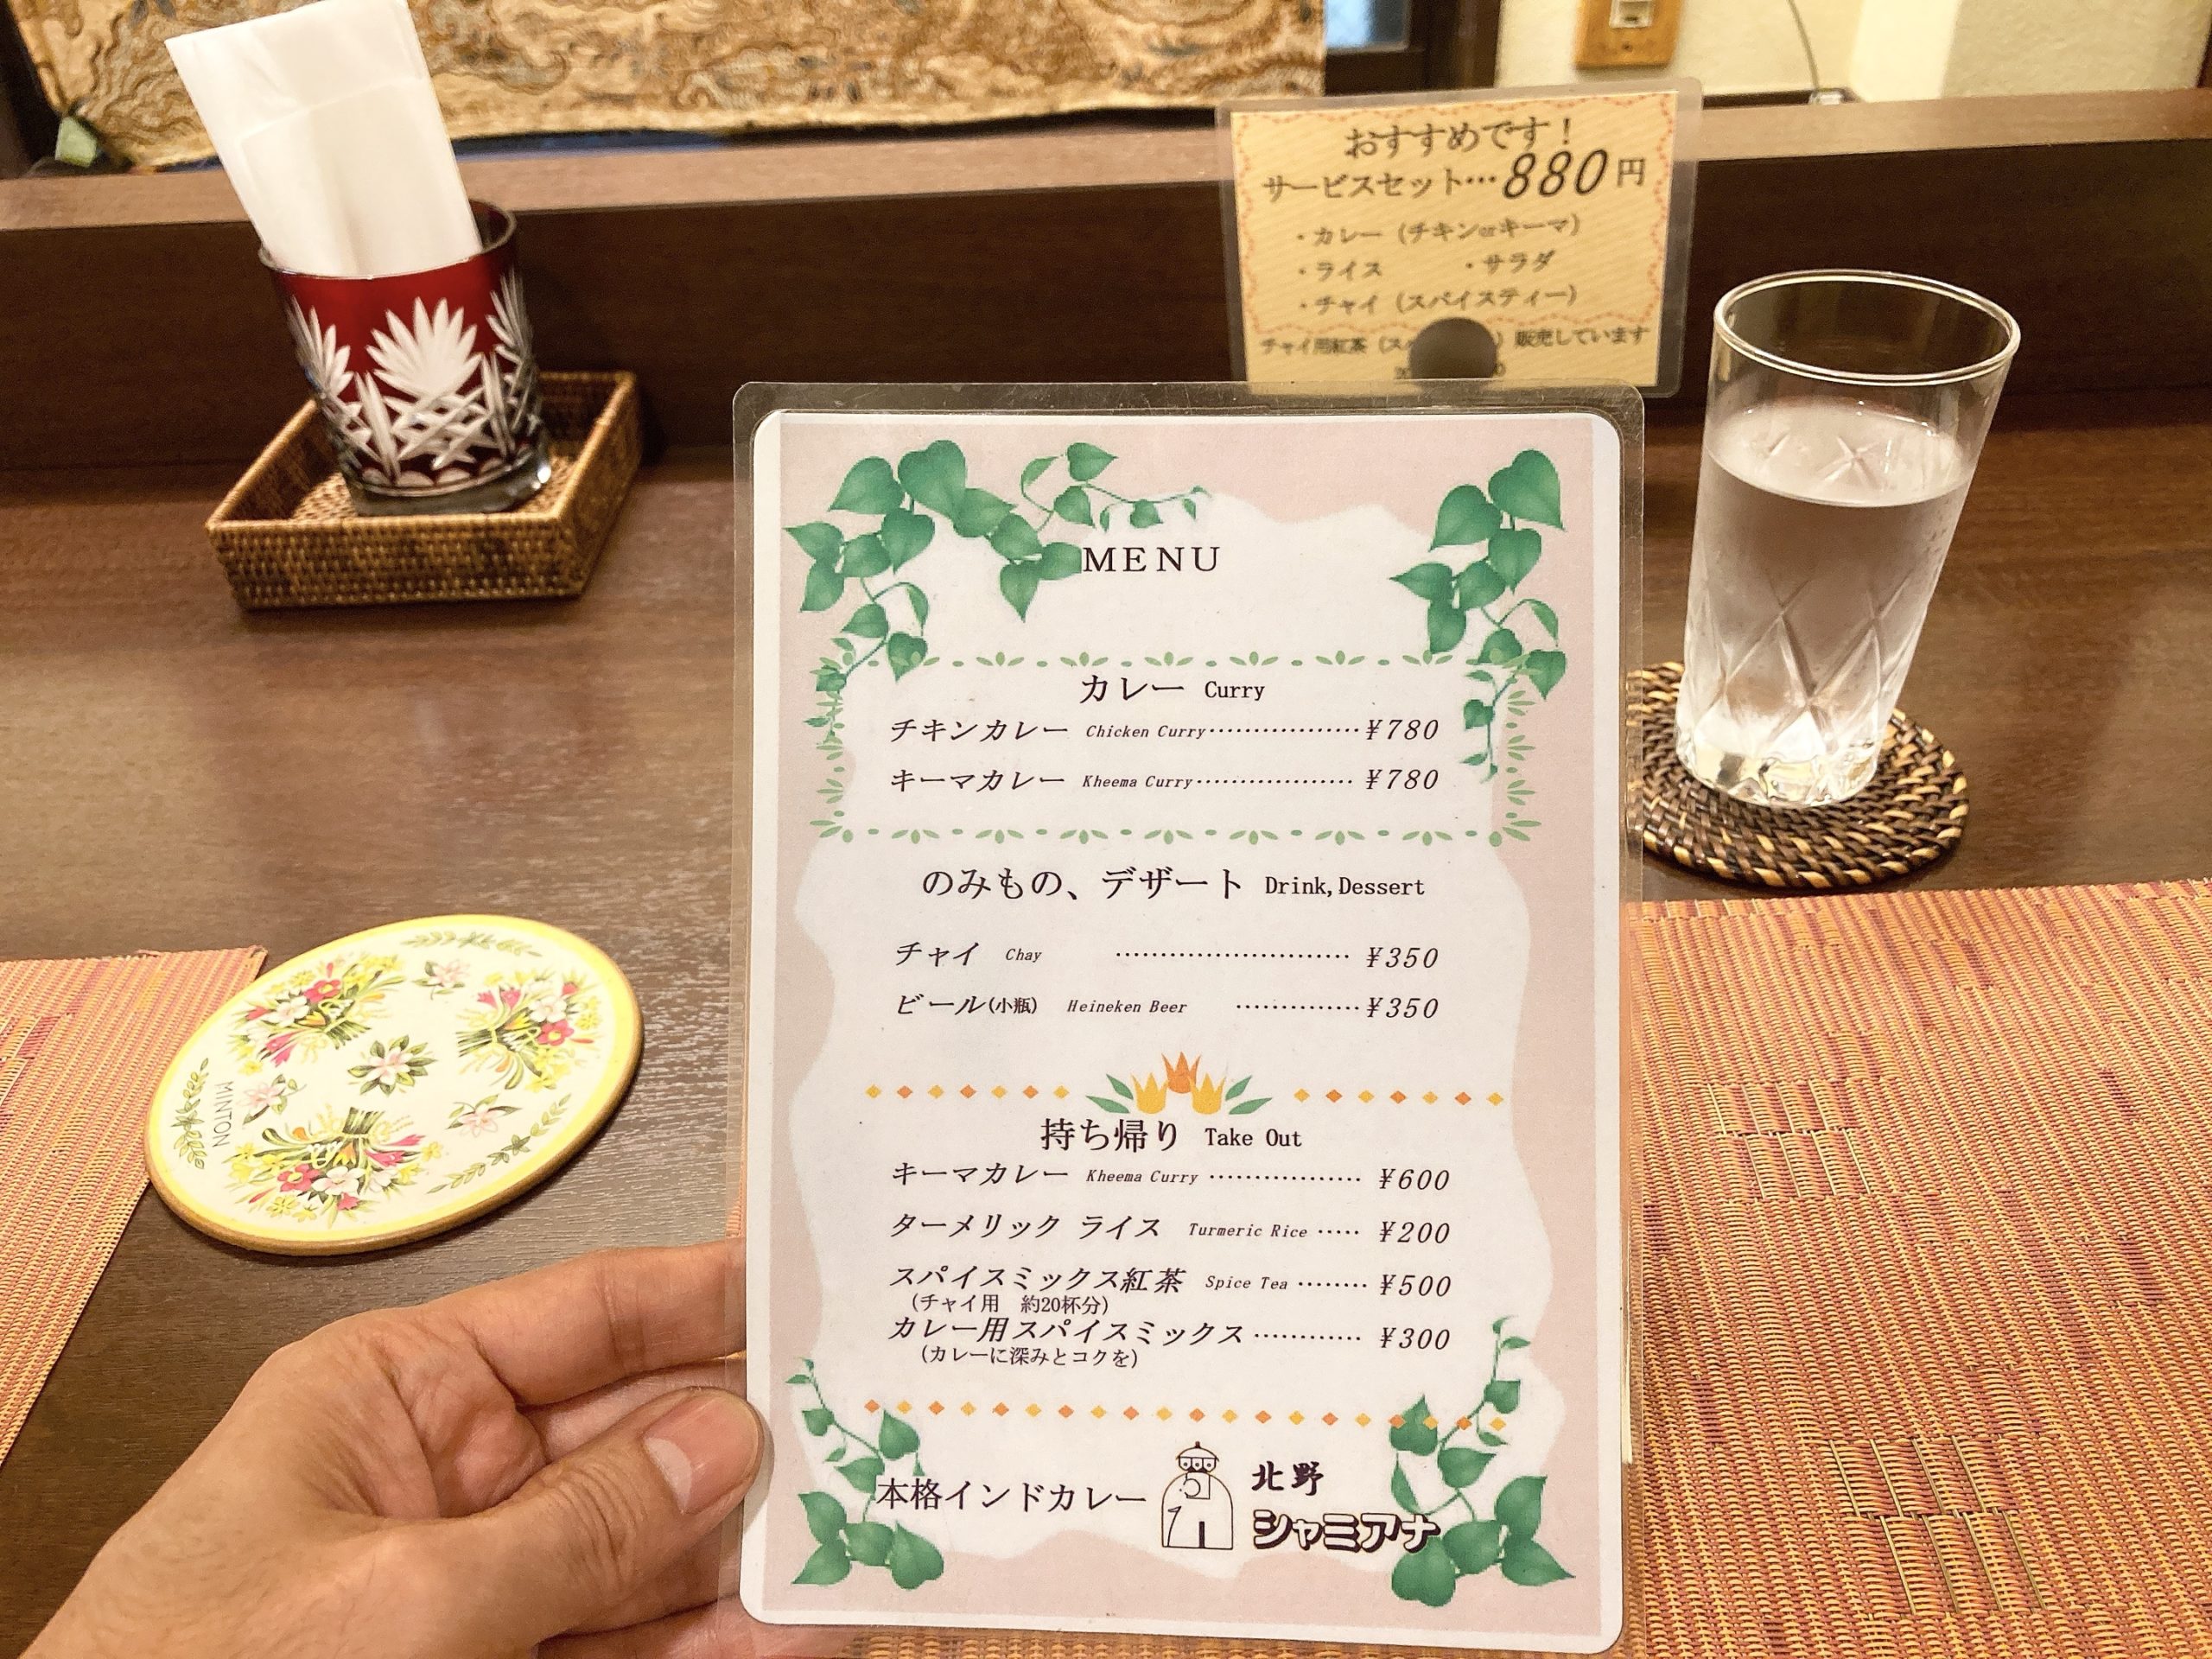 おすすめです！
サービスセット…880円
・カレー（チキンorキーマ）
・ライス ・サラダ
・チャイ（スパイスティー）
チャイ用紅茶（ス ）販売しています
MENU
カレー Curry
チキンカレー Chicken Curry………………¥780
キーマカレー Kheema Curry………………¥780
のみもの、デザート Drink,Dessert
チャイ Chay ………………………¥350
ビール(小瓶) Heineken Beer ……………¥350
持ち帰り Take Out
キーマカレー Kheema Curry ………………¥600
ターメリック ライス Turmeric Rice ……¥200
スパイスミックス紅茶 Spice Tea ………¥500
(チャイ用 約20杯分)
カレー用スパイスミックス…………¥300
(カレーに深みとコクを)
本格インドカレー 北野
シャミアナ
MINTON